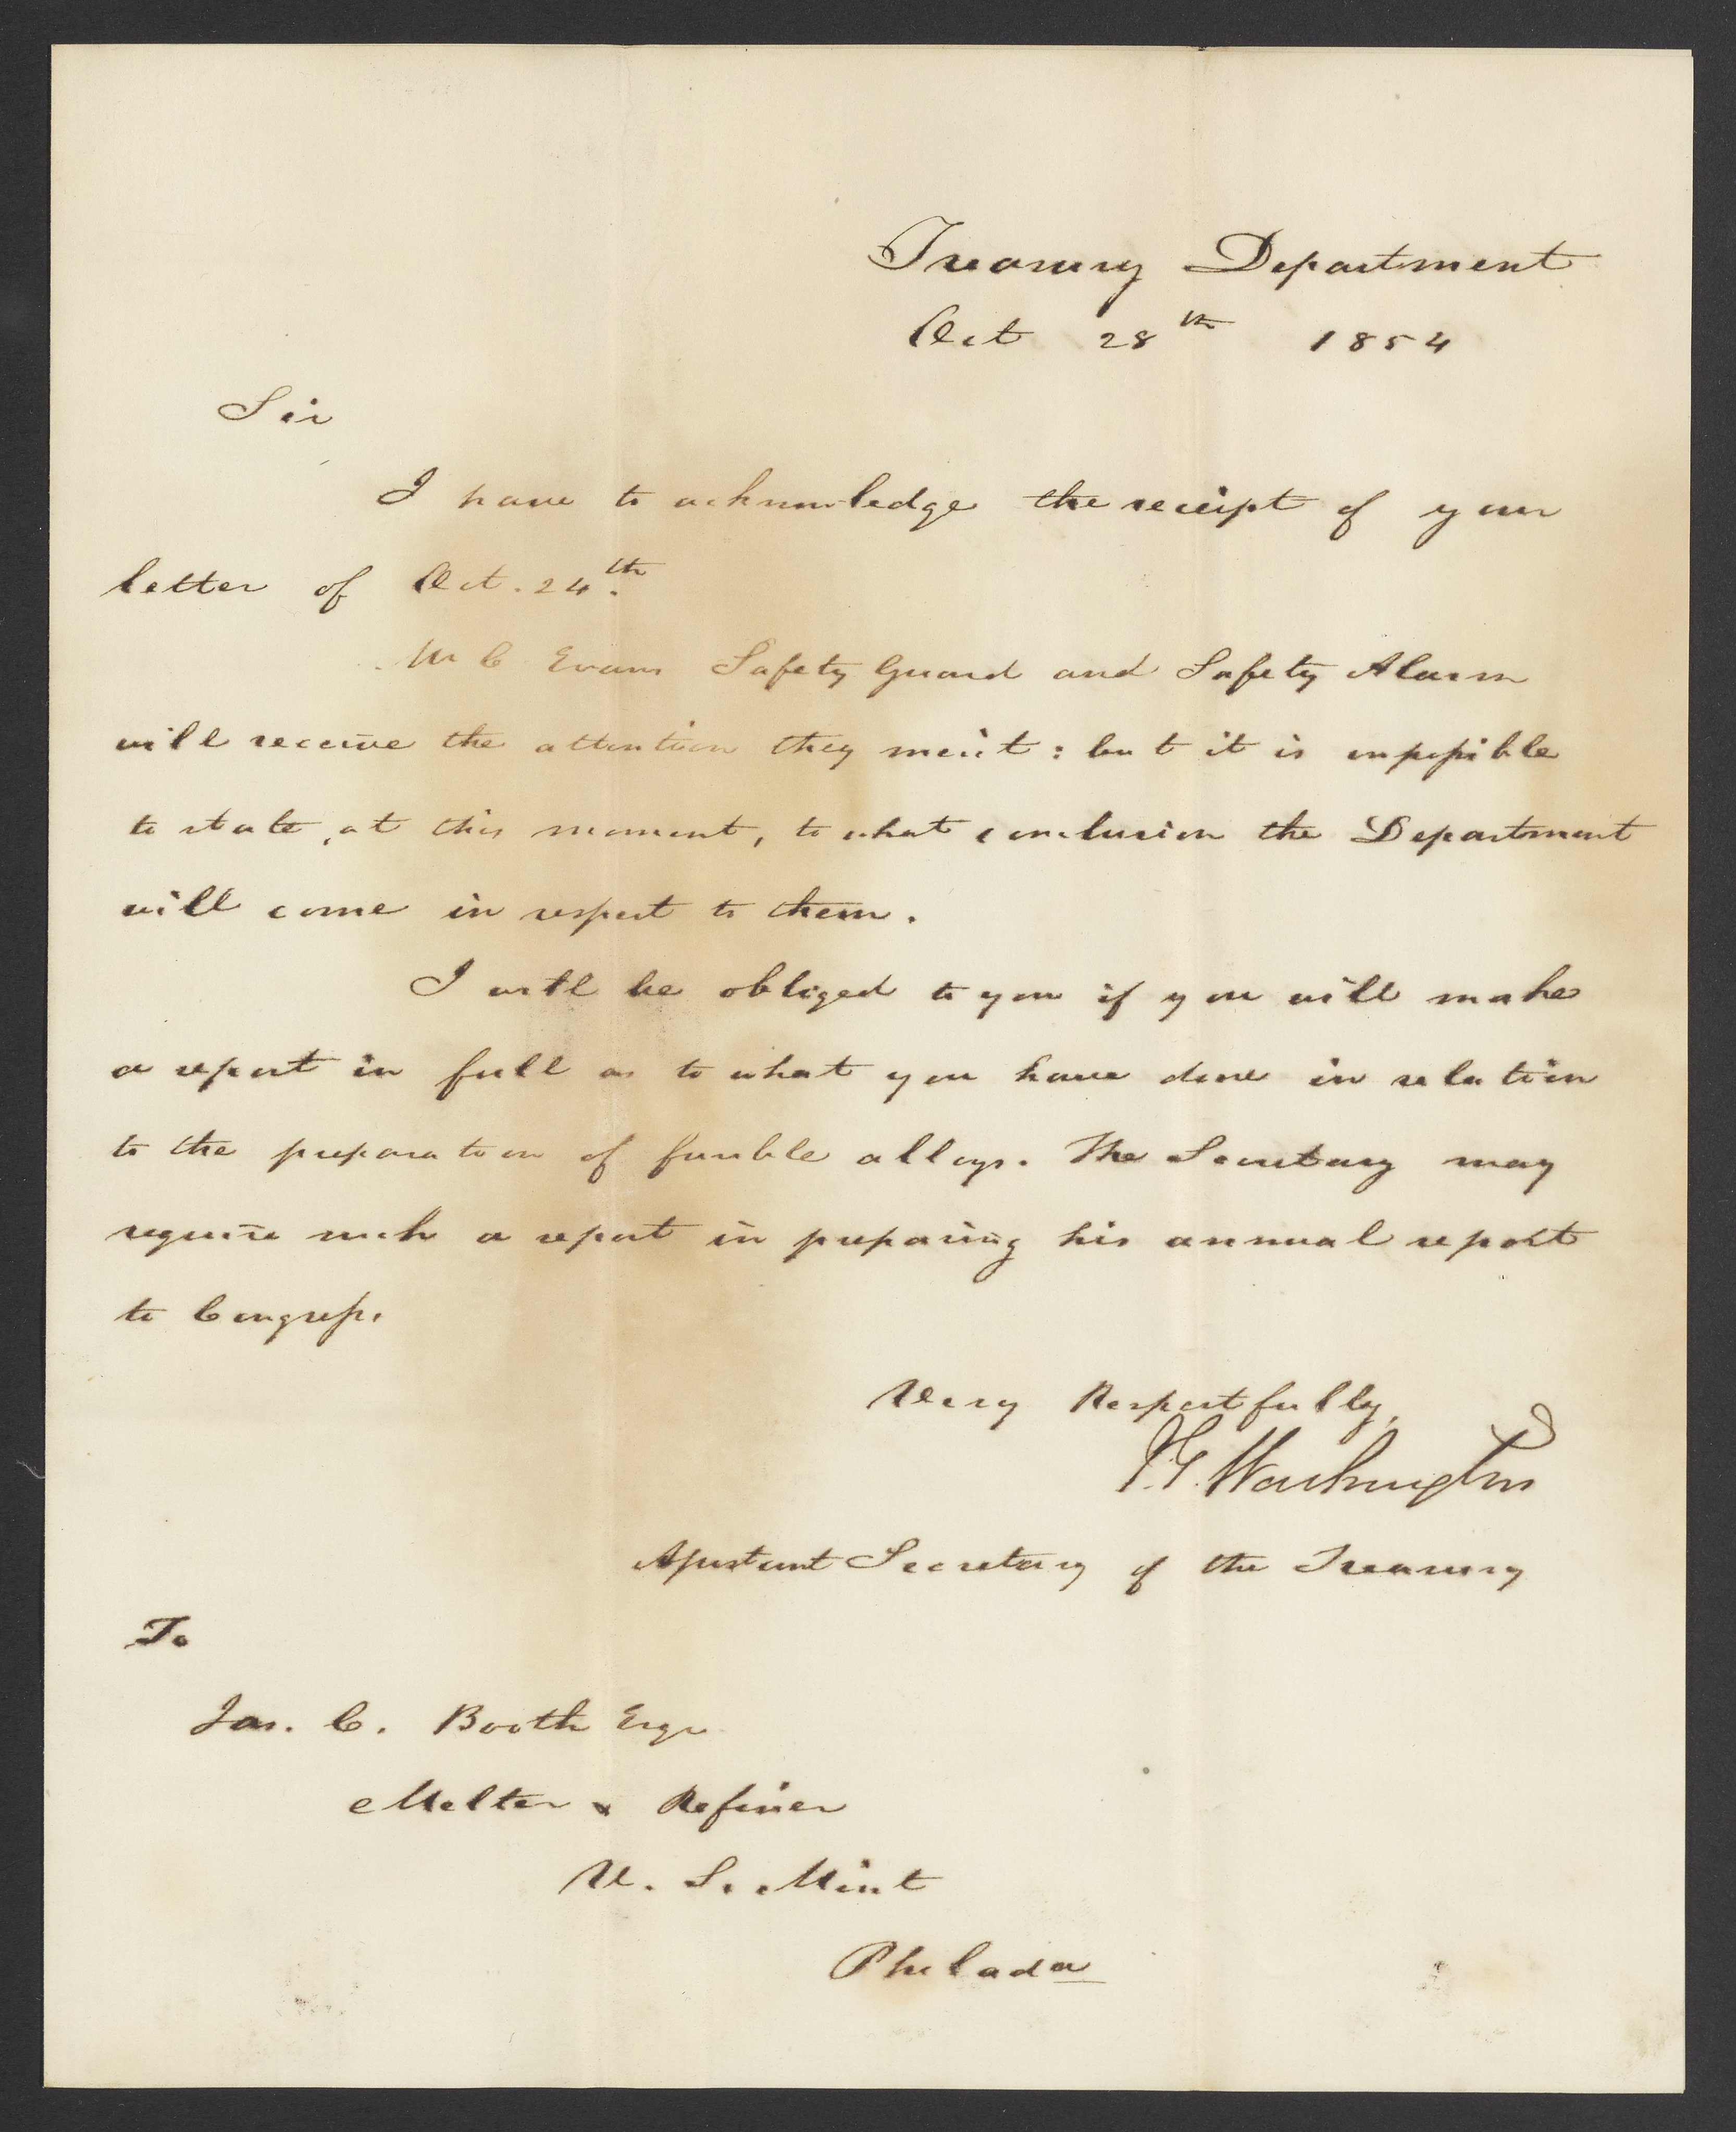 Treasury Department
Oct 28th 1854
Sir
I have to acknowledge the receipt of your
letter of Oct. 24th.
Mr C Evans Safety Guard and Safety Alarm
will receive the attention they merit: but it is impossible
to state, at this moment, to what conclusion the Department
will come in respect to them.
I will be obliged to you if you will make
a report in full as to what you have done in relation
to the preparation of fusible alloys. The Secretary may
require such a report in preparing his annual report
to Congress.
Very Respectfully,
P.G. Washington
Assistant Secretary of the Treasury
To
Jas. C. Booth Esqr
Melter & Refiner
U. S. Mint
Philada